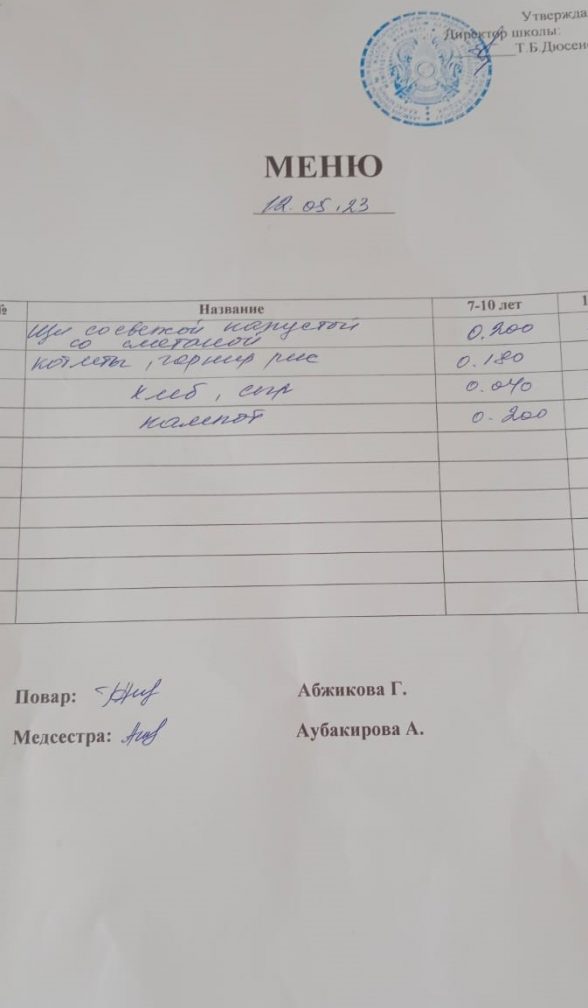 Утвержда
Директор школы:
Т.Б.Дюсен
МЕНЮ
12.05.23
№ Название 7-10 лет 1
Щи со свежой капустой 0.200
со сметаной
котлеты, гарнир рис 0.180
хлеб, сыр 0.040
кампот 0.200
Повар: Абжикова Г.
Медсестра: Аубакирова А.